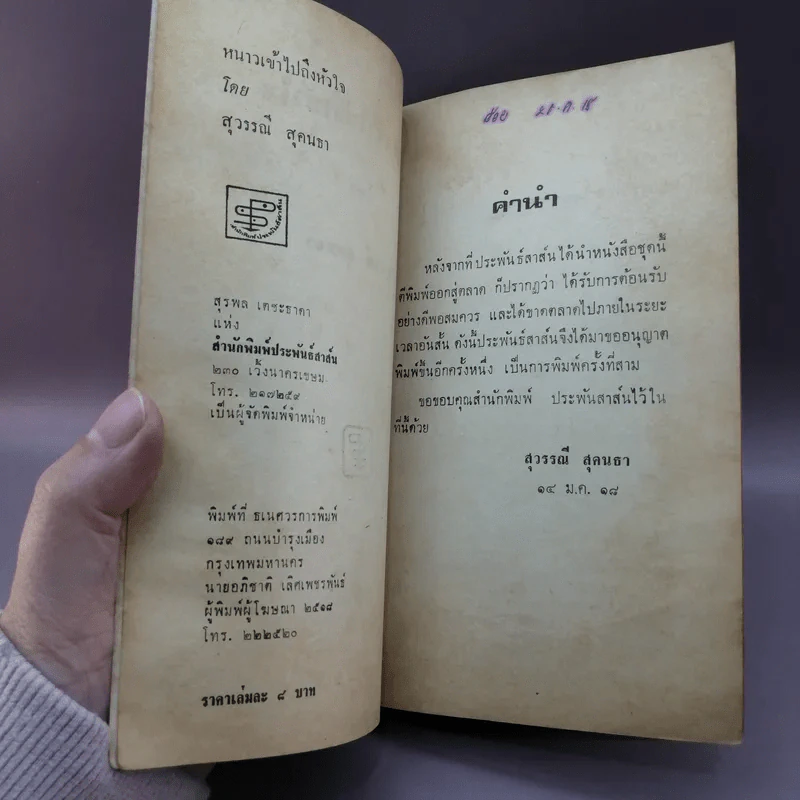 หนาวเข้าไปถึงหัวใจ
โดย
สุวรรณี สุคนธา
สุรพล เตชะธาดา
แห่ง
สำนักพิมพ์ประพันธ์สาส์น
๒๓๐ เวิ้งนาครเขษม
โทร. ๒๑๗๒๕๙
เป็นผู้จัดพิมพ์จำหน่าย
พิมพ์ที่ ธเนศวรการพิมพ์
๑๘๙ ถนนบำรุงเมือง
กรุงเทพมหานคร
นายอภิชาติ เลิศเพชรพันธ์
ผู้พิมพ์ผู้โฆษณา ๒๕๑๘
โทร. ๒๒๒๕๒๐
ราคาเล่มละ ๘ บาท
คำนำ
หลังจากที่ประพันธ์สาส์นได้นำหนังสือชุดนี้
ตีพิมพ์ออกสู่ตลาด ก็ปรากฏว่า ได้รับการต้อนรับ
อย่างดีพอสมควร และได้ขาดตลาดไปภายในระยะ
เวลาอันสั้น ดังนี้ประพันธ์สาส์นจึงได้มาขออนุญาต
พิมพ์ขึ้นอีกครั้งหนึ่ง เป็นการพิมพ์ครั้งที่สาม
ขอขอบคุณสำนักพิมพ์ ประพันสาส์นไว้ใน
ที่นี้ด้วย
สุวรรณี สุคนธา
๑๔ ม.ค. ๑๘